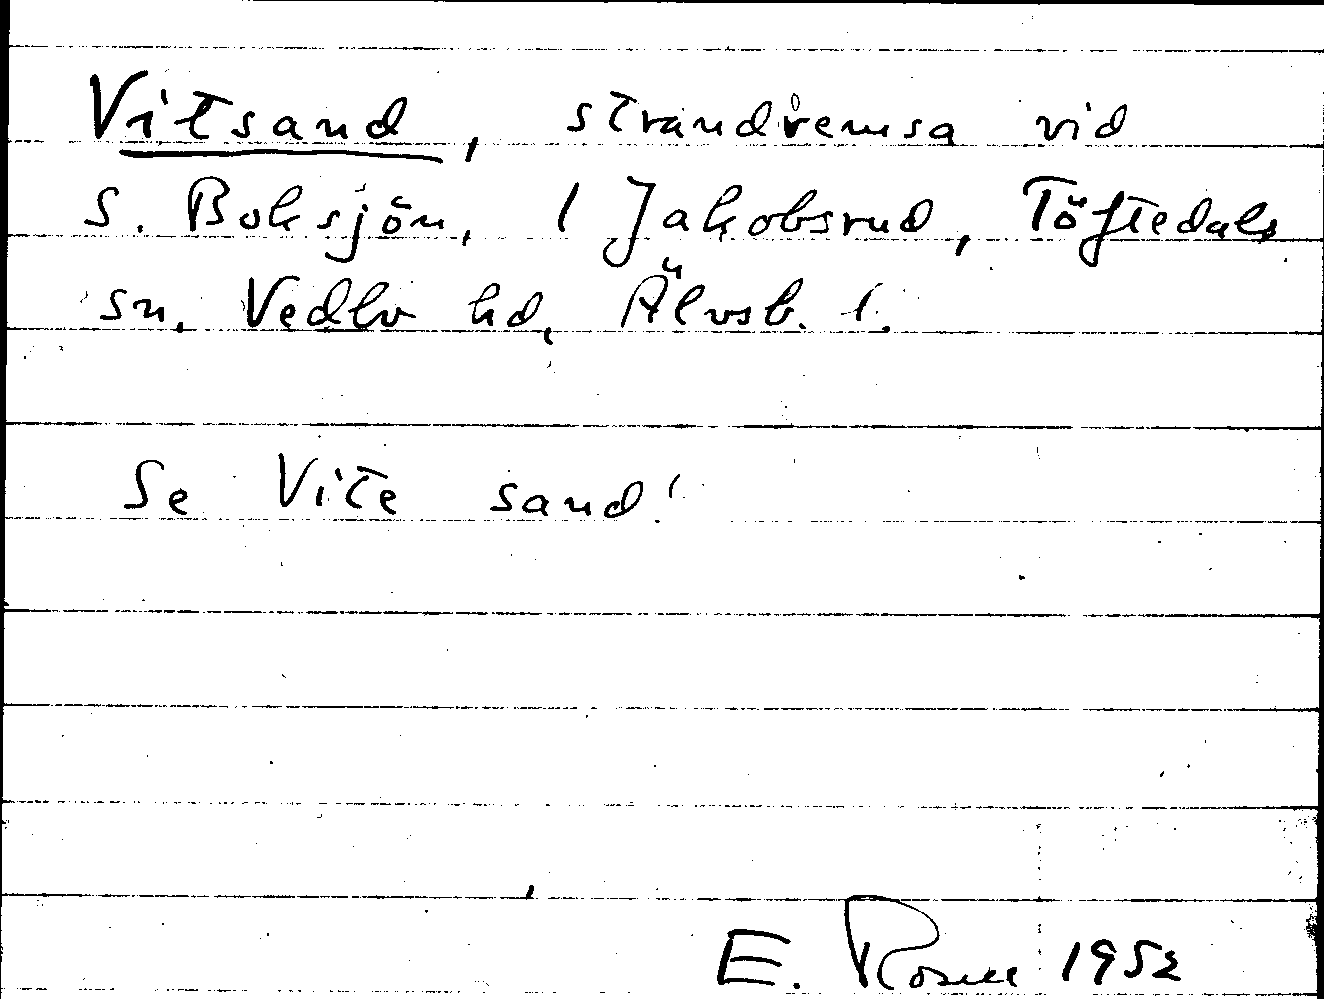 Vitsand, strandremsa vid
S. Boksjön, 1 Jakobsrud, Töftedals
sn. Vedbo hd, Älvsb. l.
Se Vite sand!
E. Rosell 1952